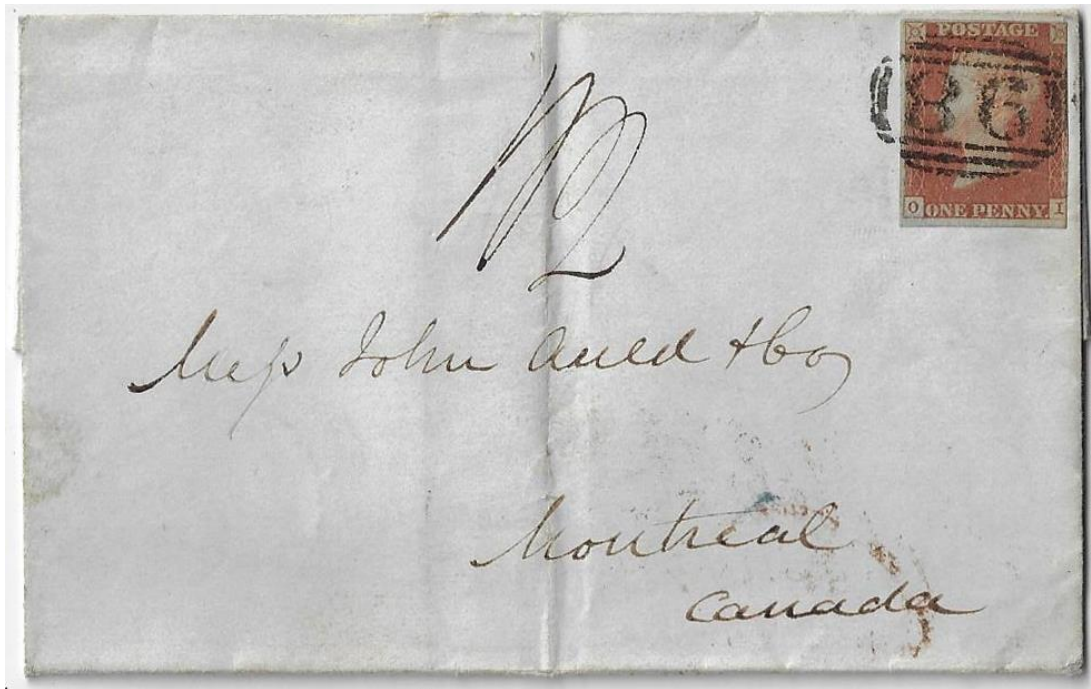 POSTAGE
86
O ONE PENNY I
1/2
Mess John Auld & Co
Montreal
Canada